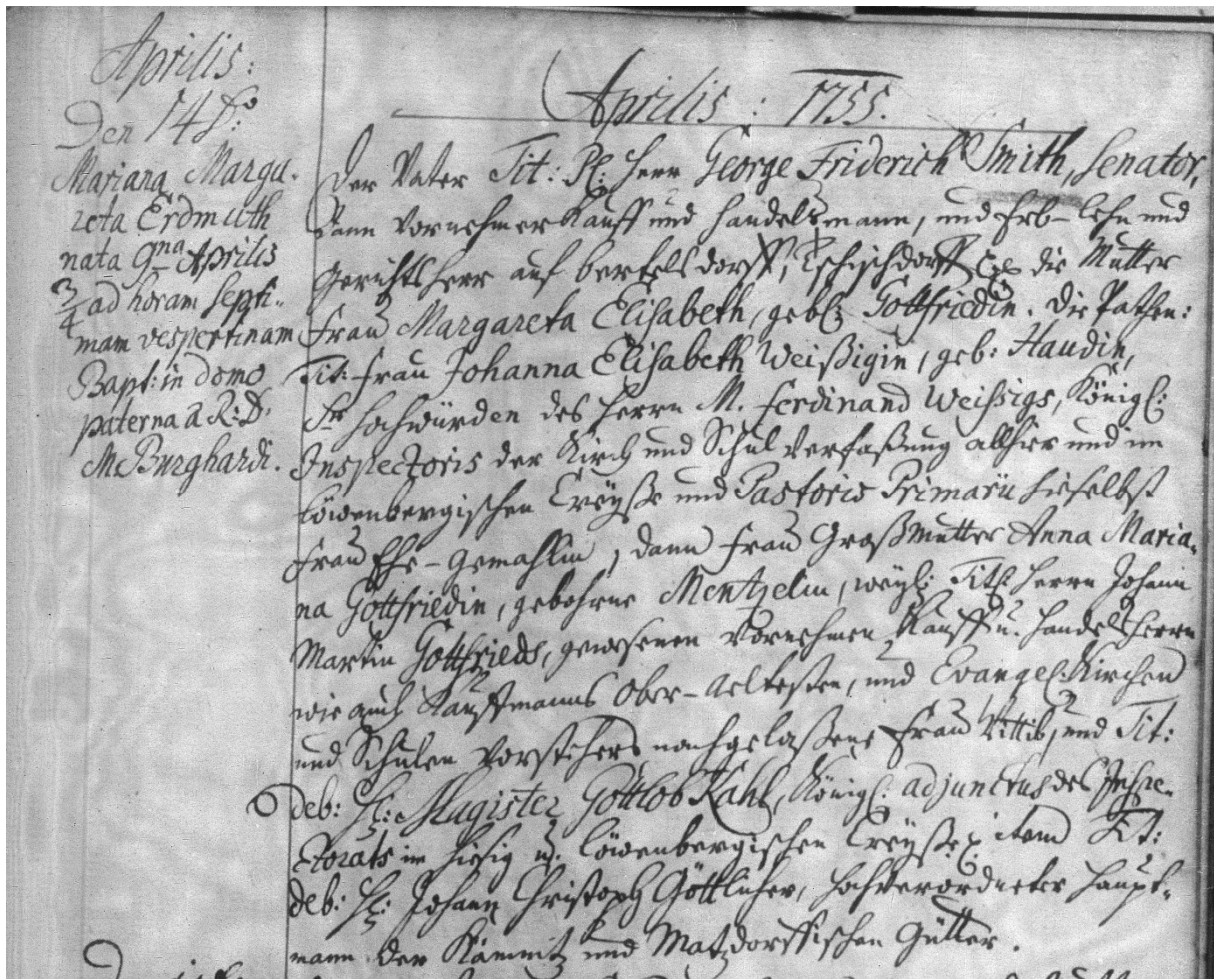 Aprilis:
Den 14 d:
Mariana Marga-
reta Erdmuth
nata 9na Aprilis
3/4 ad horam septi-
mam vespertinam
Bapt: in domo
paterna a R: D.
M. Burghardi.
Aprilis: 1755.
Der Vater Tit: Pl: Herr George Friderich Smith, Senator,
Dann Vornehmer Kauff und Handelsmann, und Erb-Lehn und
Gerichtsherr auf Bertelsdorff, Tschischdorff die Mutter
Frau Margareta Elisabeth, geb: Gottfriedin. Die Pathen:
Tit: Frau Johanna Elisabeth Weißigin, geb: Haudin,
Sr Hochwürden des Herrn M. Ferdinand Weissigs, Königl:
Inspectoris der Kirch und Schul Verfaßung allhier und im
Löwenbergischen Creÿße und Pastoris Primarii hieselbst
Frau Ehe-Gemahlin, dann Frau Großmutter Anna Maria-
na Gottfriedin, gebohrne Mentzelin, weyl: Titl: Herrn Johann
Martin Gottfrieds, gewesenen Vornehmen Kauff u. Handelsherrn
wie auch Kauffmanns Ober-Aeltesten, und Evangel: Kirchen
und Schulen Vorstehers nachgelaßene Frau Wittib, und Tit:
deb: H: Magister Gottlob Kahl, Königl: adjunctus des Inspe-
ctorats im hiesig u. Löwenbergischen Creÿße item Tit:
deb: H: Johann Christoph Göttlicher, Hochverordneter Haupt-
mann der Kämnitz und Matzdorffischen Gütter.